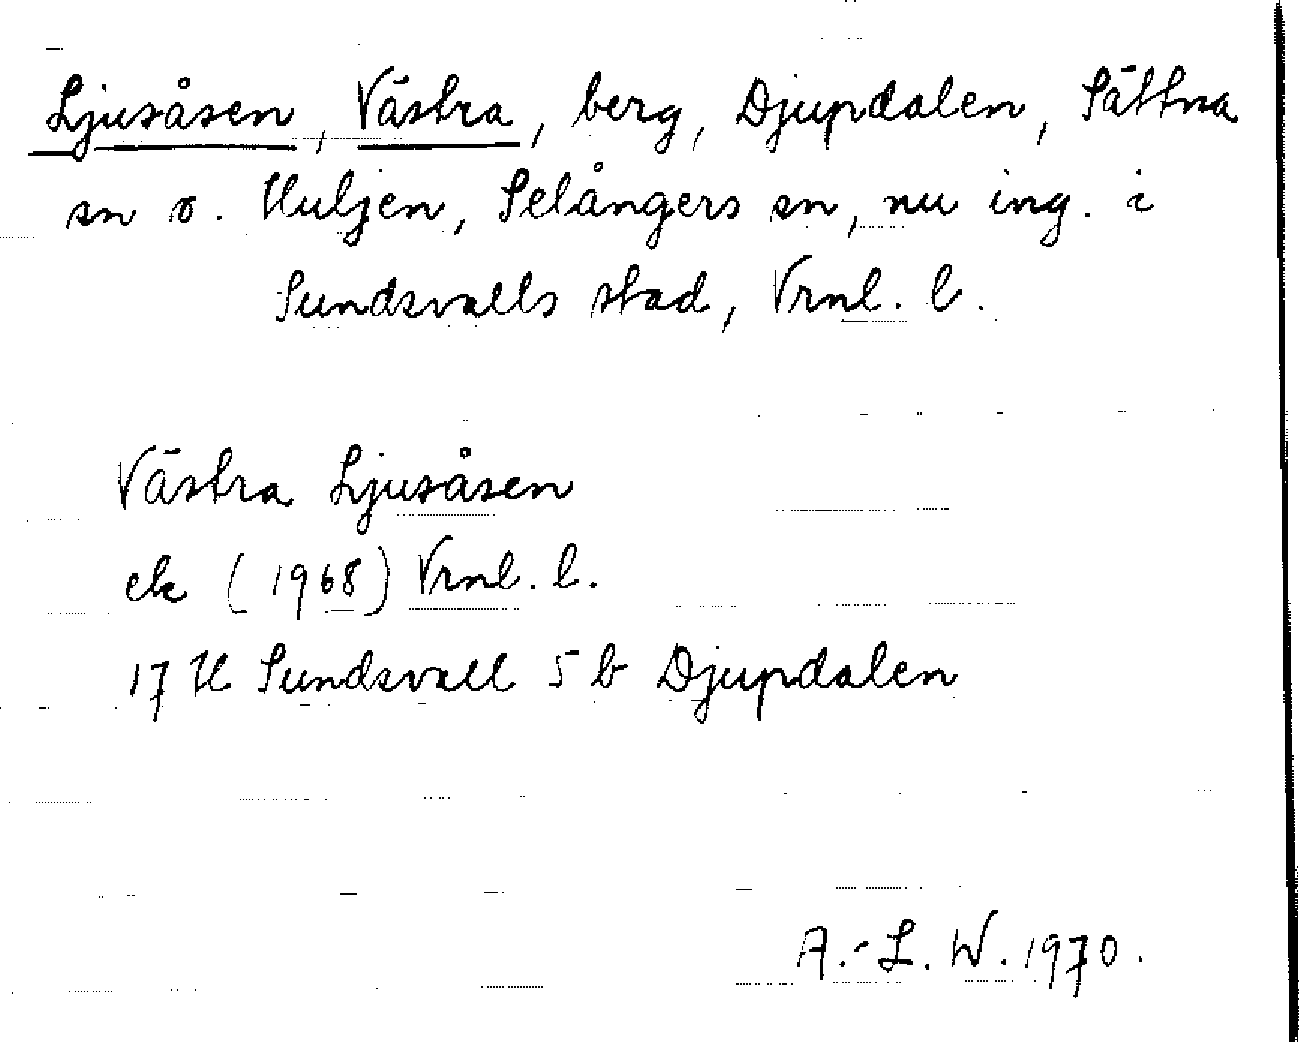 Ljusåsen, Västra, berg, Djupdalen, Sättna
sn o. Huljen, Selångers sn, nu ing. i
Sundsvalls stad, Vrnl. l.
Västra Ljusåsen
ek (1968) Vrnl. l.
17 H Sundsvall 5 b Djupdalen
A.-L. W. 1970.